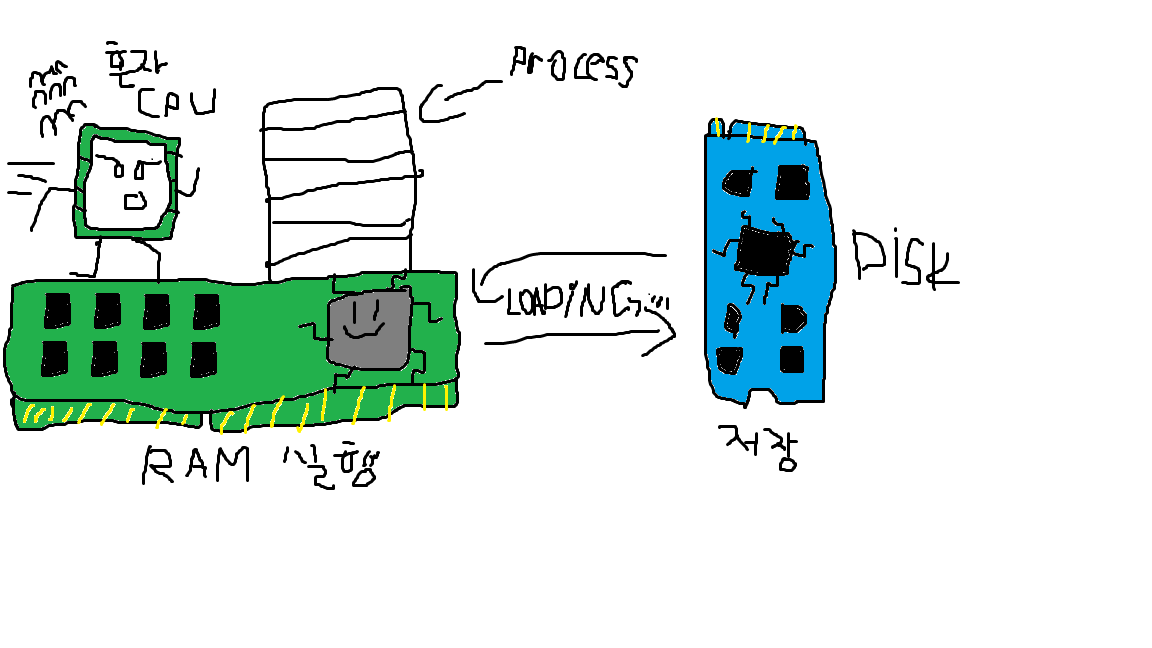 혼자
CPU
Process
LOADING...
DiSK
RAM 실행
저장